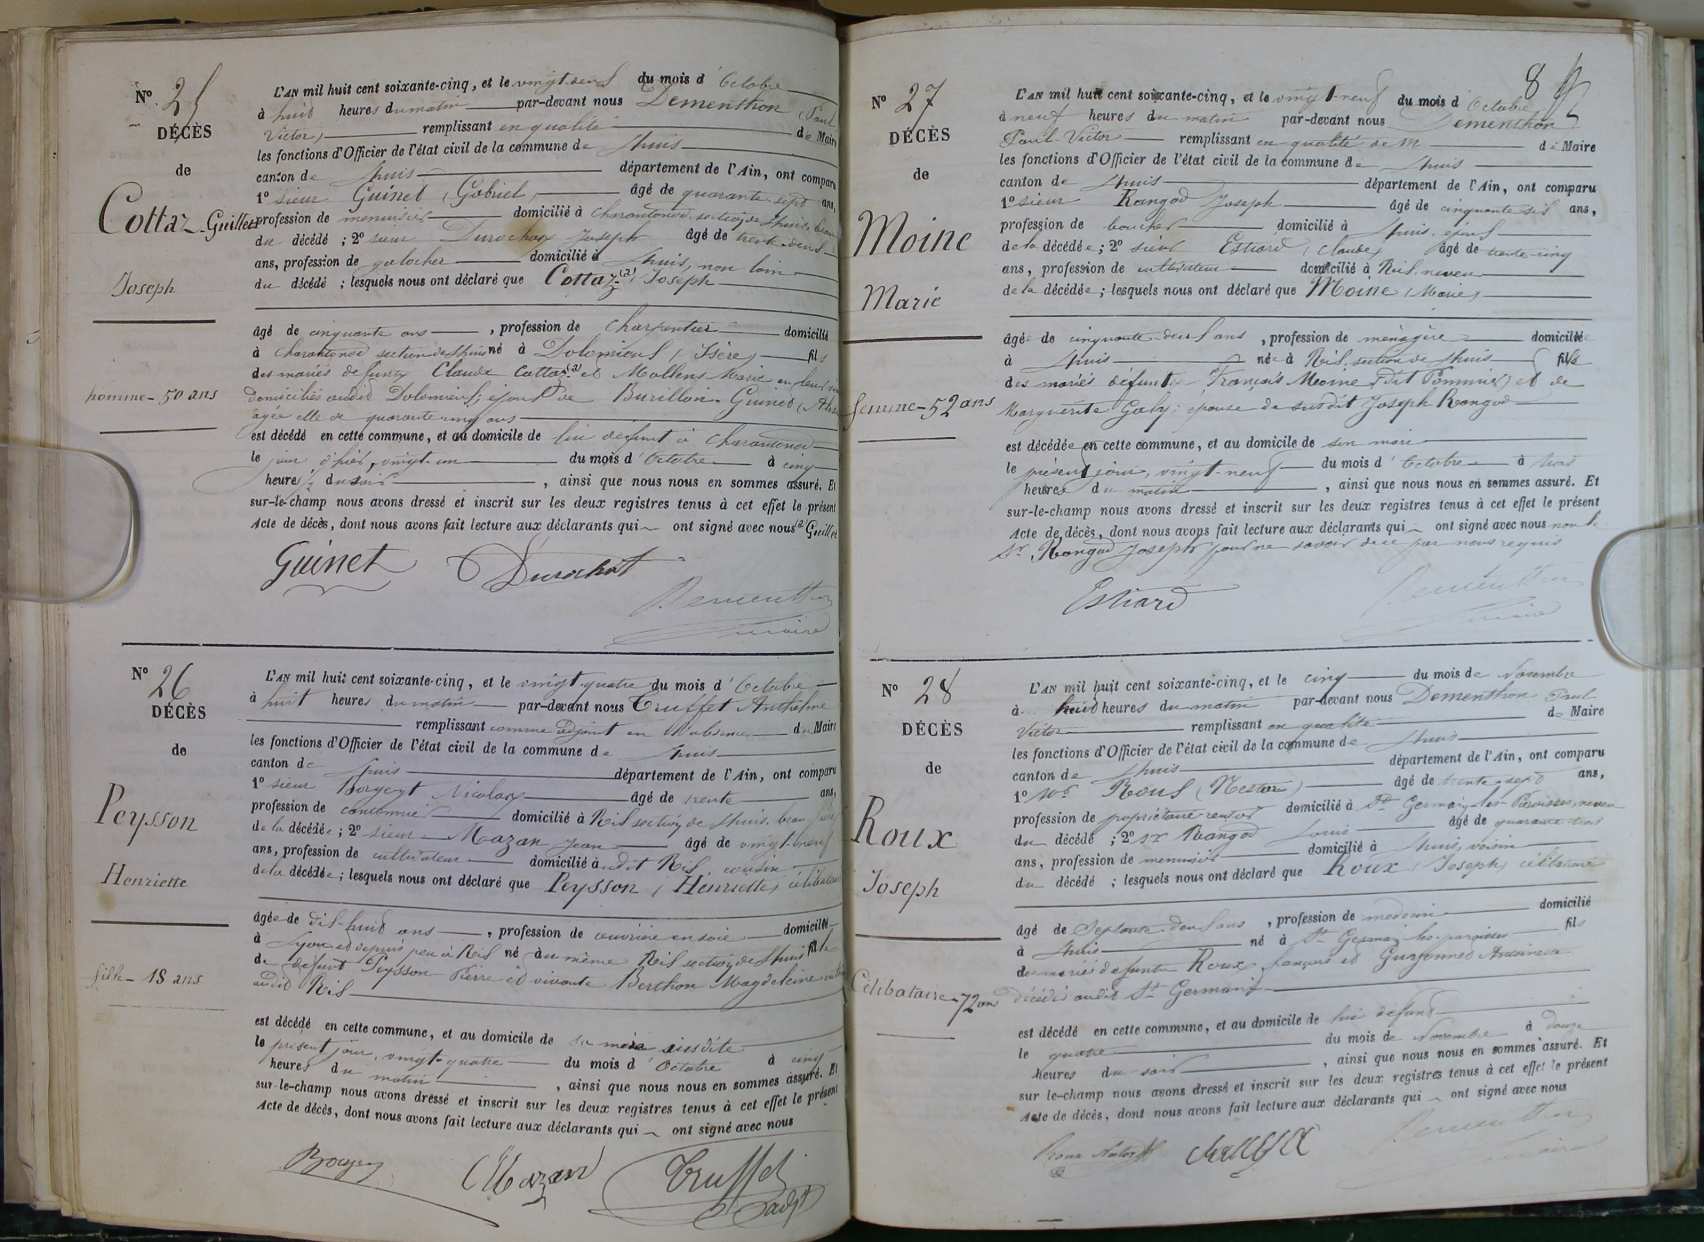 Nº 25
DÉCÈS
de
Cottaz-Guillet
Joseph
homme - 50 ans
L'AN mil huit cent soixante-cinq, et le vingt-deux du mois d'Octobre
à huit heures du matin par-devant nous Dementhon (Paul
Victor) remplissant en qualité de Maire
les fonctions d'Officier de l'état civil de la commune de Lhuis
canton de Lhuis département de l'Ain, ont comparu
1º sieur Guinet (Gabriel) âgé de quarante sept ans,
profession de menuisier domicilié à Charantonod section de Lhuis, beau
du décédé ; 2º sieur Durochat Joseph âgé de trente-deux
ans, profession de galocher domicilié à Lhuis, non loin
du décédé ; lesquels nous ont déclaré que Cottaz (a) Joseph
âgé de cinquante ans, profession de Charpentier domicilié
à Charantonod section de Lhuis né à Dolomieux (Isère) fils
des mariés defunts Claude Cottaz (a) et Mollens Marie
domiciliés audit Dolomieux; époux de Burillon-Guinet
âgée elle de quarante cinq ans
est décédé en cette commune, et au domicile de lui defunt à Charantonod
le jour d'hier, vingt-un du mois d'Octobre à cinq
heures du soir, ainsi que nous nous en sommes assuré. Et
sur-le-champ nous avons dressé et inscrit sur les deux registres tenus à cet effet le présent
Acte de décès, dont nous avons fait lecture aux déclarants qui ont signé avec nous (a) Guillet
Guinet Durochat
Dementhon
maire
Nº 26
DÉCÈS
de
Peysson
Henriette
fille - 18 ans
L'AN mil huit cent soixante-cinq, et le vingt-quatre du mois d'Octobre
à huit heures du matin par-devant nous Truffet Anthelme
remplissant comme adjoint en l'absence du Maire
les fonctions d'Officier de l'état civil de la commune de Lhuis
canton de Lhuis département de l'Ain, ont comparu
1º sieur Nicolas âgé de trente ans,
profession de domicilié à Rix section de Lhuis, beau frère
de la décédée ; 2º sieur Mazan Jean âgé de vingt-neuf
ans, profession de cultivateur domicilié à udit Rix, cousin
de la décédée ; lesquels nous ont déclaré que Peysson (Henriette) célibataire
âgée de dix-huit ans, profession de ouvrière en soie domiciliée
à Lyon et depuis peu à Rix né au même Rix section de Lhuis fille
de defunt Peysson Pierre et vivante Berthon Magdeleine
audit Rix
est décédé en cette commune, et au domicile de sa mère susdite
le présent jour, vingt-quatre du mois d'Octobre à cinq
heures du matin, ainsi que nous nous en sommes assuré. Et
sur-le-champ nous avons dressé et inscrit sur les deux registres tenus à cet effet le présent
Acte de décès, dont nous avons fait lecture aux déclarants qui ont signé avec nous
Mazan Truffet
adjt
8
Nº 27
DÉCÈS
de
Moine
Marie
femme - 52 ans
L'AN mil huit cent soixante-cinq, et le vingt-neuf du mois d'Octobre
à neuf heures du matin par-devant nous Dementhon
Paul-Victor remplissant en qualité de M de Maire
les fonctions d'Officier de l'état civil de la commune de Lhuis
canton de Lhuis département de l'Ain, ont comparu
1º sieur Rangod Joseph âgé de cinquante six ans,
profession de boucher domicilié à Lhuis, époux
de la décédée ; 2º sieur Estiard (Claude) âgé de trente-cinq
ans, profession de cultivateur domicilié à Rix, neveu
de la décédée ; lesquels nous ont déclaré que Moine (Marie)
âgée de cinquante-deux ans, profession de ménagère domiciliée
à Lhuis née à Rix section de Lhuis fille
des mariés défunts François Moine (dit Pommier) et de
Marguerite Gaby; épouse du susdit Joseph Rangod
est décédée en cette commune, et au domicile de son mari
le présent jour, vingt-neuf du mois d'Octobre à trois
heures du matin, ainsi que nous nous en sommes assuré. Et
sur-le-champ nous avons dressé et inscrit sur les deux registres tenus à cet effet le présent
Acte de décès, dont nous avons fait lecture aux déclarants qui ont signé avec nous non le
Sr Rangod Joseph pour ne savoir de ce par nous requis
Estiard
Dementhon
maire
Nº 28
DÉCÈS
de
Roux
Joseph
Célibataire - 72 ans
L'AN mil huit cent soixante-cinq, et le cinq du mois de Novembre
à huit heures du matin par-devant nous Dementhon Paul
Victor remplissant en qualité de Maire
les fonctions d'Officier de l'état civil de la commune de Lhuis
canton de Lhuis département de l'Ain, ont comparu
1º Roux (Nestor) âgé de trente-sept ans,
profession de propriétaire rentier domicilié à St Germain les Paroisses, neveu
du décédé ; 2º sr Rangod Louis âgé de quarante trois
ans, profession de menuisier domicilié à Lhuis, voisin
du décédé ; lesquels nous ont déclaré que Roux (Joseph) célibataire
âgé de Septante-deux ans, profession de médecin domicilié
à Lhuis né à St Germain les-paroisses fils
des mariés défunts Roux françois et Guyonnet
décédés audit St Germain
est décédé en cette commune, et au domicile de lui défunt
le quatre du mois de Novembre à douze
heures du soir, ainsi que nous nous en sommes assuré. Et
sur le-champ nous avons dressé et inscrit sur les deux registres tenus à cet effet le présent
Acte de décès, dont nous avons fait lecture aux déclarants qui ont signé avec nous
Roux Nestor
Dementhon
maire